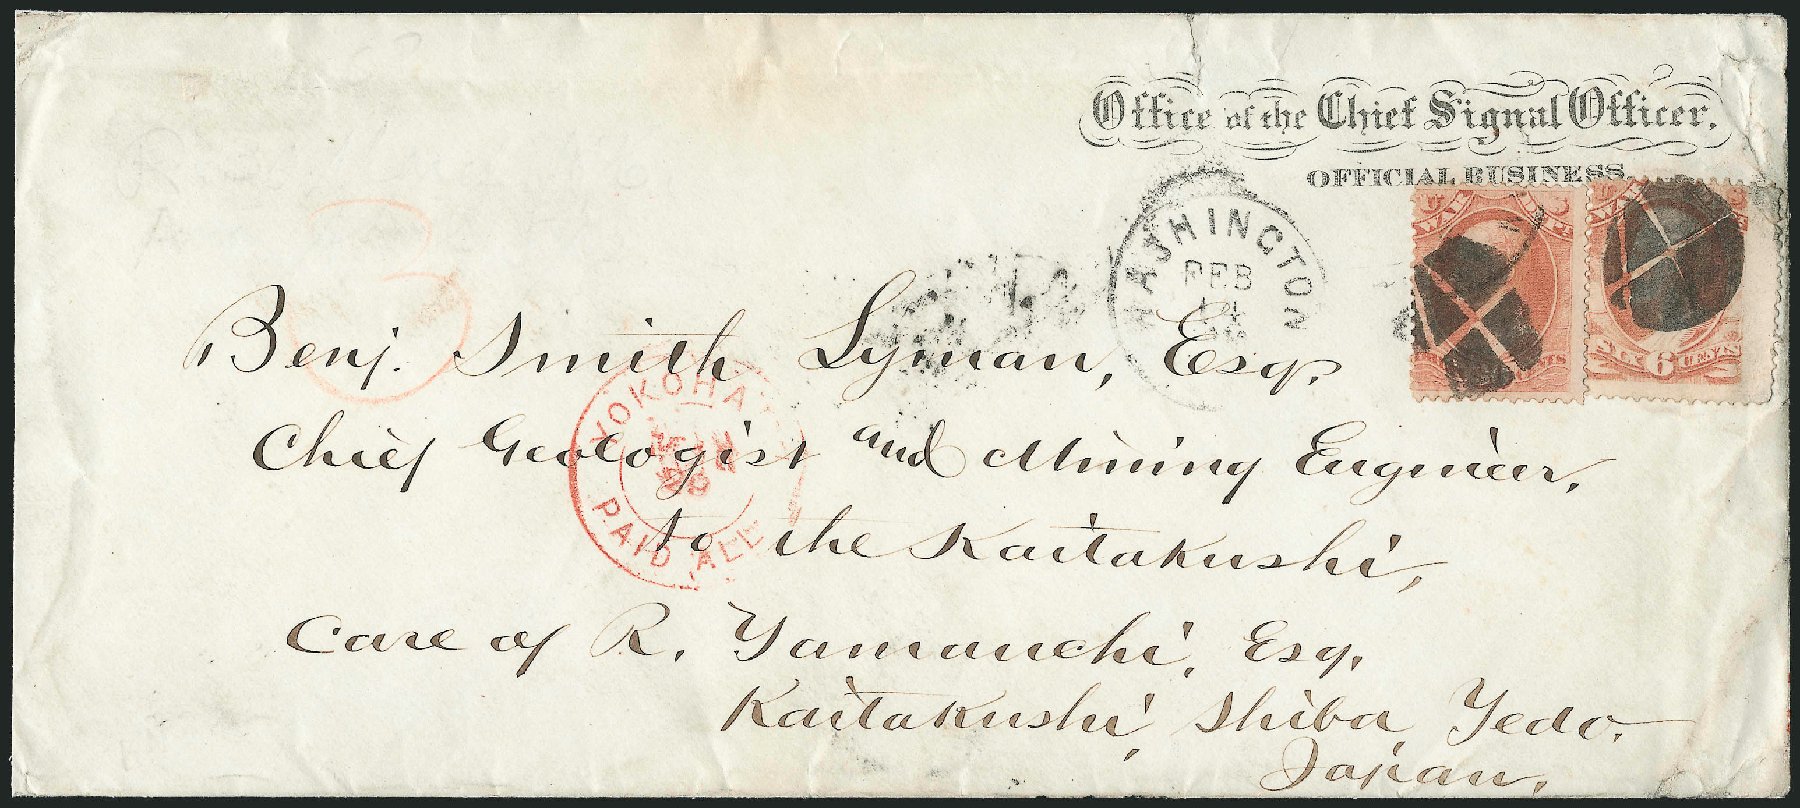 Office of the Chief Signal Officer.
OFFICIAL BUSINESS.
WASHINGTON
FEB
14
SIX 6 CENTS
Benj. Smith Lyman, Esqr.
Chief Geologist and Mining Engineer,
to the Kaitakushi,
YOKOHAMA
PAID ALL
Care of R. Yamauchi, Esq.
Kaitakushi, Shiba, Yedo.
Japan.